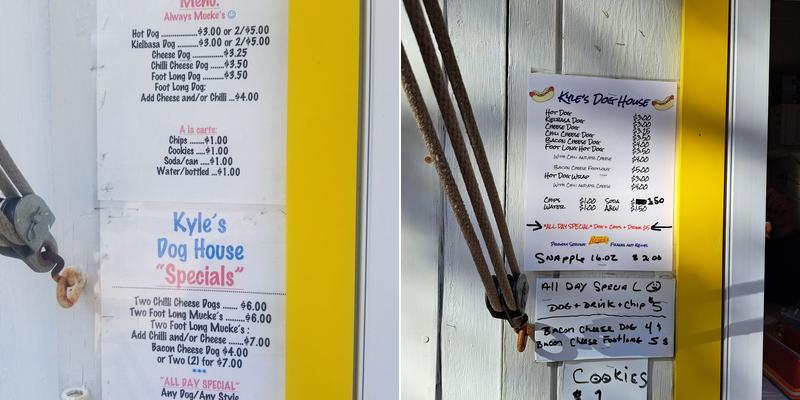 Menu:
Always Mucke's ☺
Hot Dog ............$3.00 or 2/$5.00
Kielbasa Dog ....$3.00 or 2/$5.00
Cheese Dog ........$3.25
Chilli Cheese Dog .....$3.50
Foot Long Dog ......$3.50
Foot Long Dog:
Add Cheese and/or Chilli ...$4.00
A la carte:
Chips ......$1.00
Cookies ....$1.00
Soda/can ....$1.00
Water/bottled ...$1.00
Kyle's
Dog House
"Specials"
Two Chilli Cheese Dogs ....... $6.00
Two Foot Long Mucke's ......$6.00
Two Foot Long Mucke's :
Add Chilli and/or Cheese .......$7.00
Bacon Cheese Dog $4.00
or Two (2) for $7.00
***
"ALL DAY SPECIAL"
Any Dog/Any Style
Kyle's Dog House
Hot Dog $3.00
Kielbasa Dog $3.00
Cheese Dog
Chili Cheese Dog
Bacon Cheese Dog $4.00
Foot Long Hot Dog $3.50
with Chili and/or Cheese $4.00
Bacon Cheese Footlong $5.00
Hot Dog Wrap $3.00
with Chili and/or Cheese $4.00
Chips $1.00 Soda 1.50
Water $1.00 A&W $1.50
*All Day Special* Dog + Chips + Drink $5
Proudly Serving Franks and Kielbs
Snapple 16.oz $2.00
All Day Special ☺
Dog + Drink + Chip $5
Bacon Cheese Dog 4 $
Bacon Cheese Footlong 5 $
Cookies
$ 1